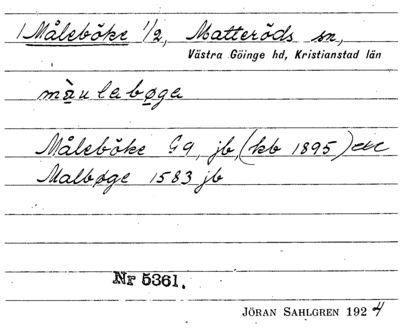 1 Måleböke 1/2, Matteröds sn,
Västra Göinge hd, Kristianstad län
màulabøga
Måleböke G9, jb, (kb 1895) etc
Malbøge 1583 jb
Nr 5361.
JÖRAN SAHLGREN 1924